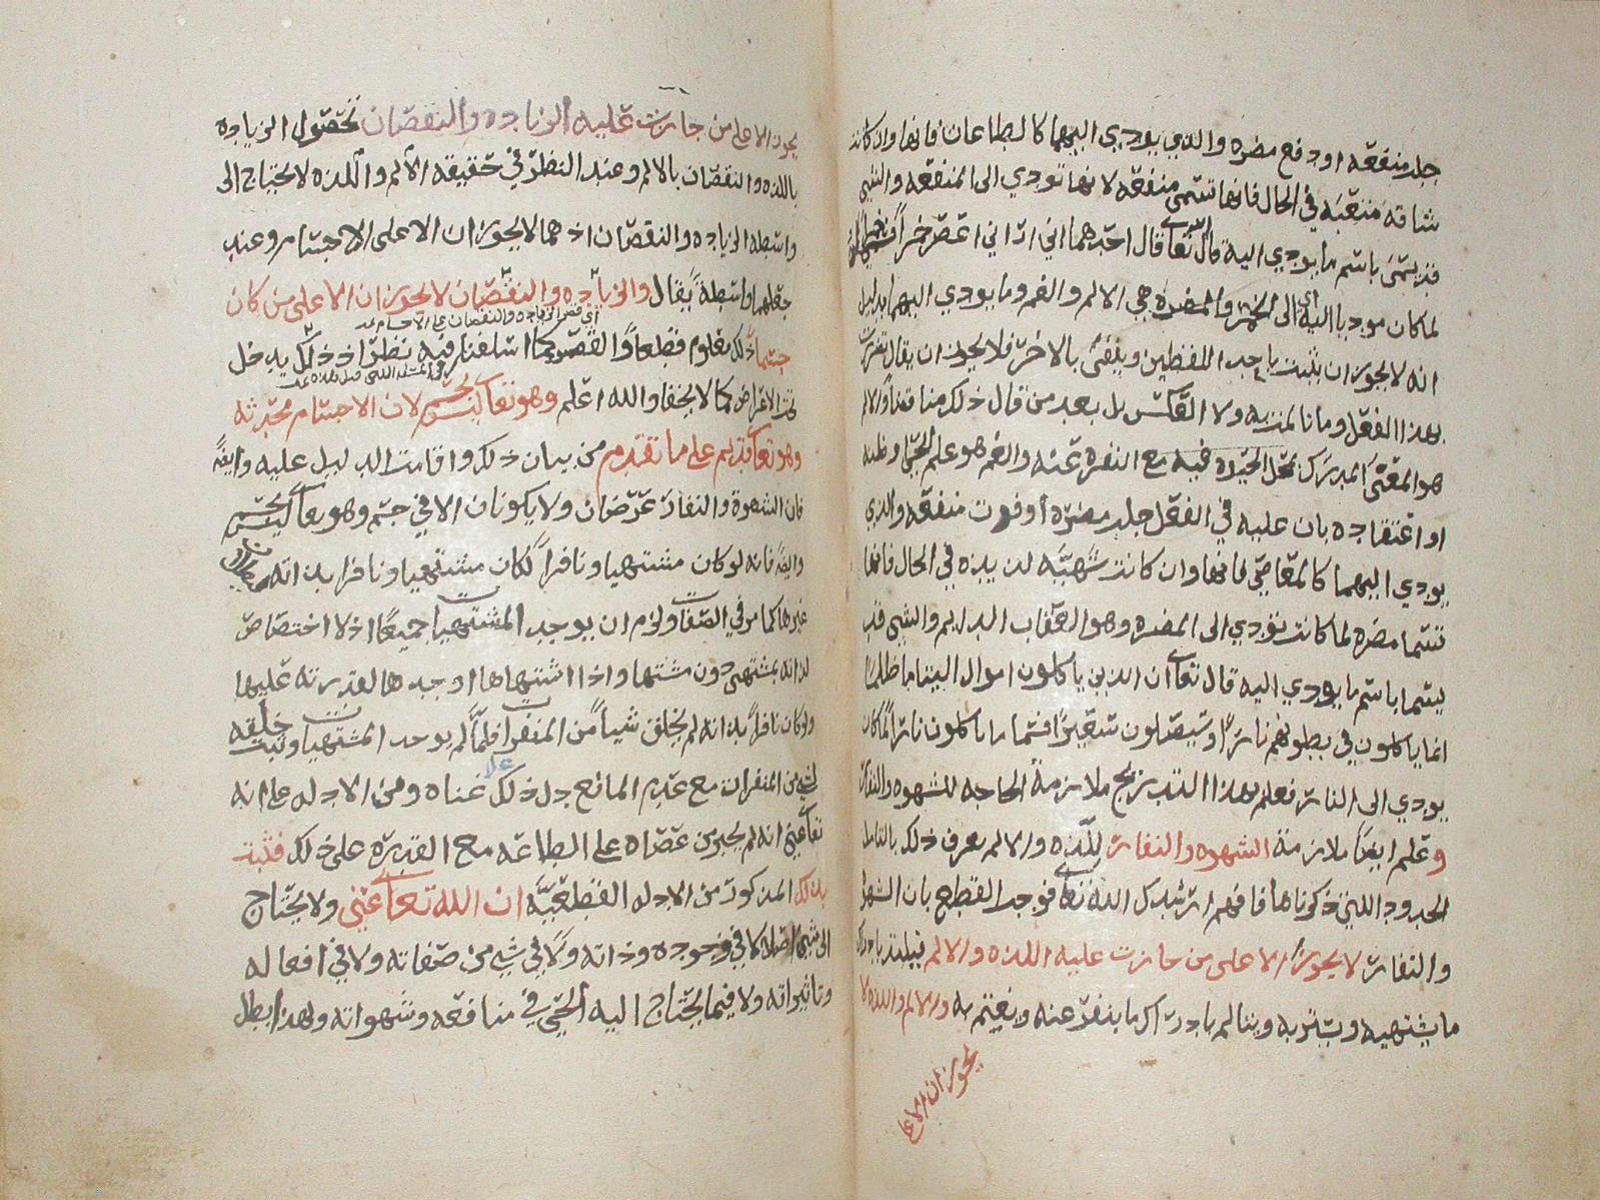 جلب منفعه او دفع مضره والذي يودي اليهما كالطاعات فانها وان كانت
شاقه متعبه في الحال فانها تسمى منفعه لانها تودي الى المنفعه والشي
قد يسمى باسم ما يودي اليه قال الله تعالى قال احدهما اني اراني اعصر خمراً
لما كان موديا اليه اي الى الخمر والمضره هي الالم والغم وما يودي اليهما بدليل
انه لا يجوز ان يثبت باحد اللفظين وينفى بالاخر فلا يجوز ان يقال تضررت
بهذا الفعل وما نالمت به ولا العكس بل يعد من قال ذلك مناقضاً والالم
هو المعنى المدرك بمحل الحيوة فيه مع النفره عنه والغم هو علم الحي او ظنه
او اعتقاده بان عليه في الفعل جلب مضره او فوت منفعه والذي
يودي اليهما كالمعاصي فانها وان كانت شهيه لذيذه في الحال فانها
تسما مضره لما كانت تودي الى المضره وهو العقاب الدايم والشي قد
يسما باسم ما يودي اليه قال تعالى ان الذين ياكلون اموال اليتاما ظلما
انما ياكلون في بطونهم ناراً وسيصلون سعيراً فسما ما ياكلون ناراً لما كان
يودي الى النار فعلم بهذا التدريج ملازمة الحاجه للشهوه والنفار
وعلم ايضا ملازمة الشهوه والنفار للذه والالم يعرف ذلك بالتامل
الحدود التي ذكرناها فافهم ارشدك الله تعالى فوجب القطع بان الشهوه
والنفار لا يجوزان الا على من جازت عليه اللذه والالم فيلتذ بادراك
ما يشتهيه ويسر به ويتالم بادراك ما ينفر عنه ويغتم به والالم واللذه لا
يجوزان الا على
يجوزان الا على من جازت عليه الزياده والنقصان فتحصل الزياده
باللذه والنقصان بالالم وعند النظر في حقيقه الالم واللذه لا يحتاج الى
واسطه الزياده والنقصان اذ هما لا يجوزان الا على الاجسام وعند
جعلهما واسطة يقال والزياده والنقصان لا يجوزان الا على من كان
جسماً ذلك معلوم قطعاً اسلفنا فيه نظراً اذ ذلك يدخل
اي قصر الزياده والنقصان على الاجسام
تحت الاعراض كما لا يخفا والله اعلم وهو تعالى ليس بجسم لان الاجسام محدثه
وهو تعالى قديم على ما تقدم من بيان ذلك واقامت الدليل عليه وايضاً
فان الشهوة والنفار عرضان ولا يكونان الا في جسم وهو تعالى ليس بجسم
وايضاً فانه لو كان مشتهيا ونافراً لكان مشتهيا ونافرا بذاته
غيرها كما مر في الصفات ولزم ان يوجد المشتهيات جميعاً اذ لا اختصاص
لذاته بمشتهى دون مشتها واذا اشتهاها اوجدها لقدرته عليها
ولو كان نافراً بذاته لم يخلق شياً من المنفرات فلما لم يوجد المشتهيات وثبت خلقه
لشي من المنفرات مع عدم المانع دل ذلك على غناه ومن الادله على انه
تعالى غني انه لم يجبر من عصاه على الطاعه مع القدره على ذلك فثبت
بذلك المذكور من الادله القطعيه ان الله تعالى غني ولا يحتاج
الى شي اصلا لا في وجوده وذاته ولا في شي من صفاته ولا في افعاله
وتاثيراته ولا فيما يحتاج اليه الحي في منافعه وشهواته ولهذا بطل